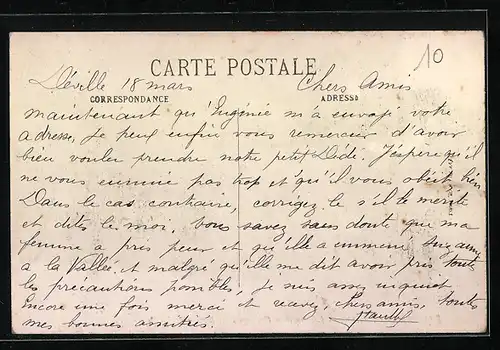 10
CARTE POSTALE
Déville 18 mars Chers Amis
CORRESPONDANCE ADRESSE
maintenant qu'Eugénie m'a envoyé votre
adresse, je peux enfin vous remercier d'avoir
bien vouler prendre notre petit Dédé. J'espère qu'il
ne vous ennuie pas trop et qu'il vous obéit bien
Dans le cas contraire, corrigez le s'il le mérite
et dites le moi. Vous savez sans doute que ma
femme a très peur et qu'elle a emmené
à la Vallée et malgré qu'elle me dit avoir pris toutes
les précautions possibles, je suis assez inquiet
Encore une fois merci et recevez, chers amis, toutes
mes bonnes amitiés.